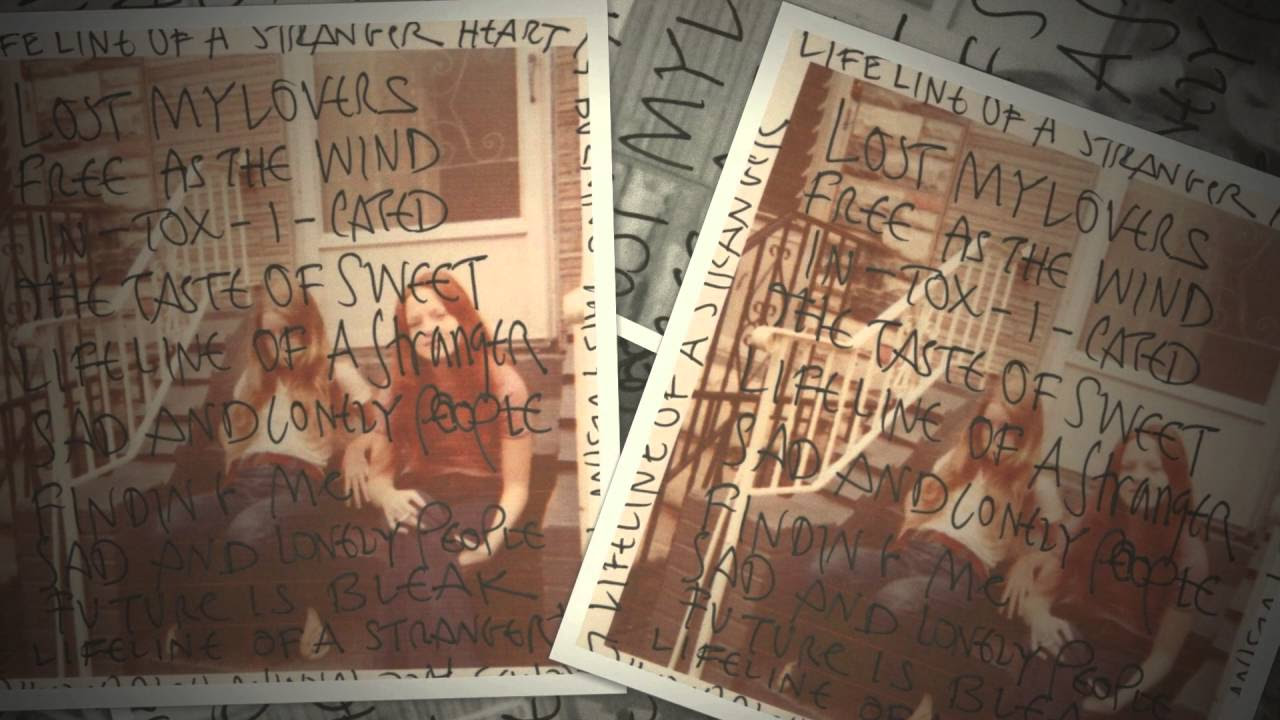 FE LINE OF A STRANGER HEART
LOST MY LOVERS
FREE AS THE WIND
IN-TOX-I-CATED
THE TASTE OF SWEET
LIFELINE OF A Stranger
SAD AND LONELY PEOPLE
FINDING Me
SAD AND LONELY PEOPLE
FUTURE IS BLEAK
LIFELINE OF A STRANGER
LIFELINE OF A STRANGER
LOST MY LOVERS
FREE AS THE WIND
IN-TOX-I-CATED
THE TASTE OF SWEET
LIFELINE OF A Stranger
SAD AND LONELY PEOPLE
FINDING Me
SAD AND LONELY PEOPLE
FUTURE IS BLEA
LIFELINE OF A
LIFELINE OF A STRANGER
MY L